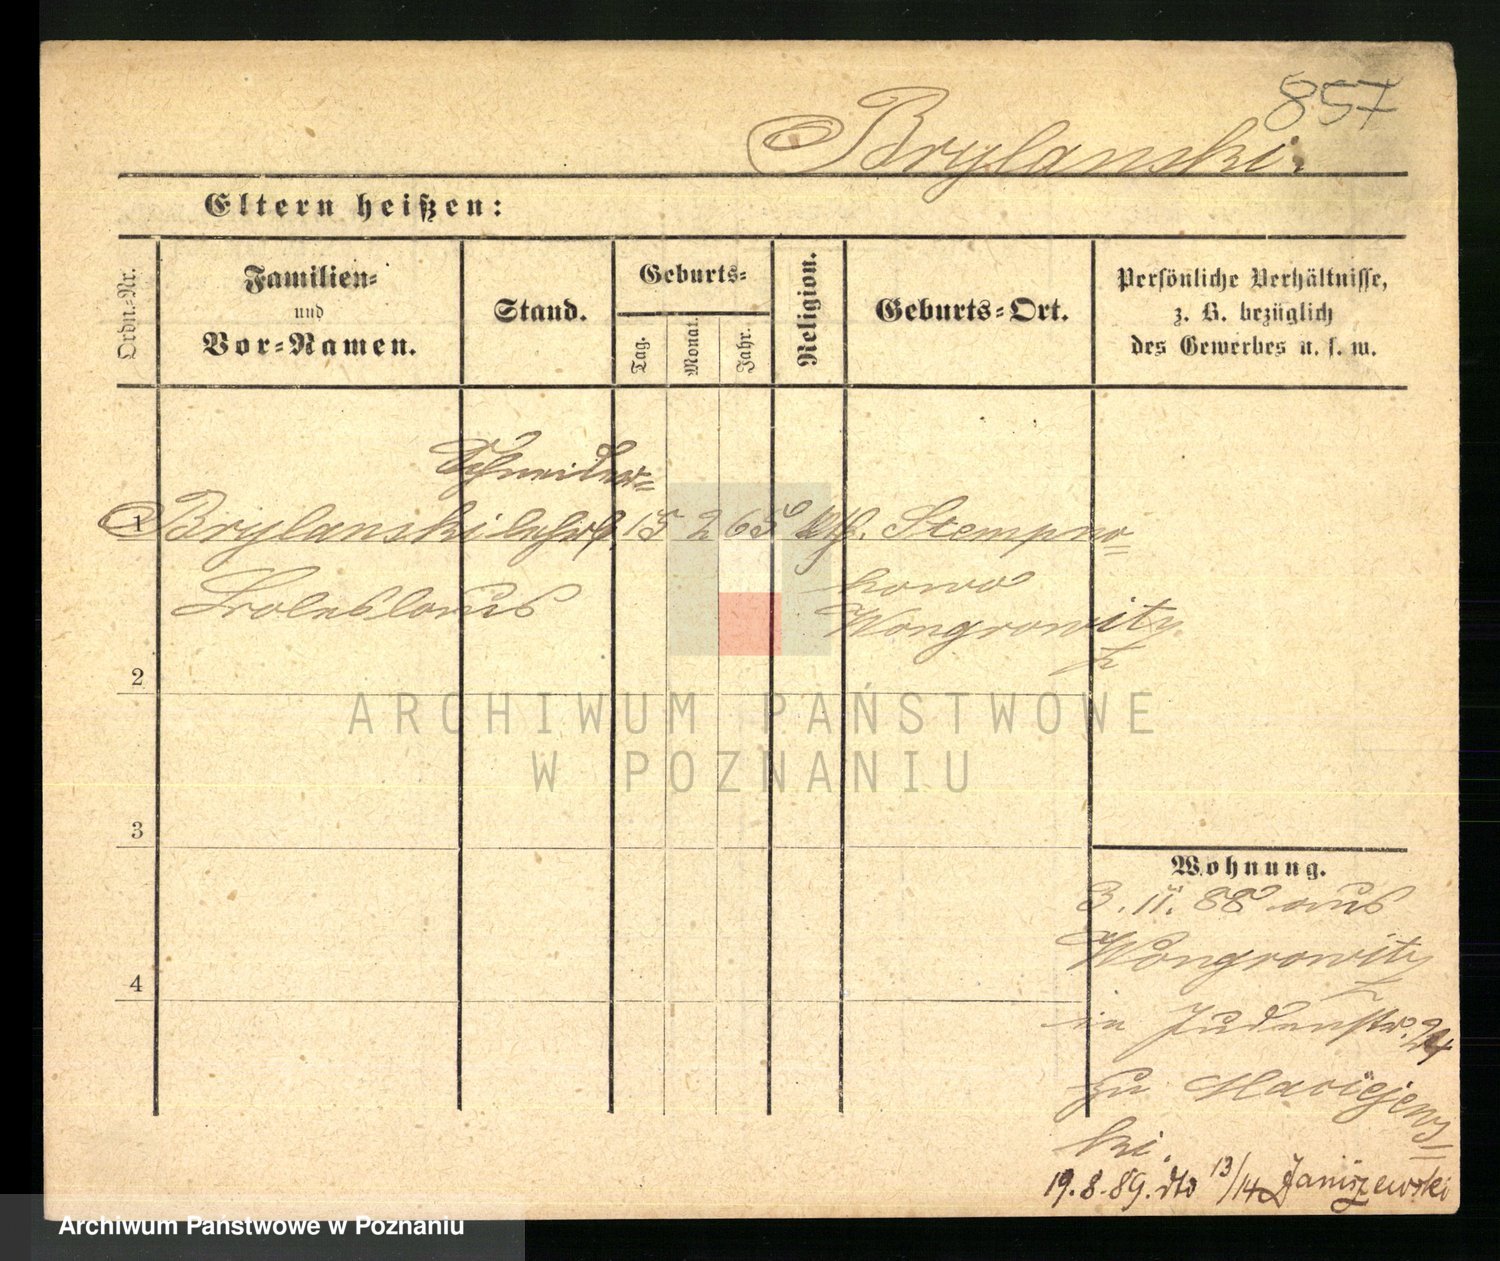 857
Brylanski.
Eltern heißen:
Ordn.-Nr.
Familien-
und
Vor-Namen.
Stand.
Geburts-
Tag.
Monat.
Jahr.
Religion.
Geburts-Ort.
Persönliche Verhältnisse,
z. B. bezüglich
des Gewerbes u. s. w.
Schneider-
1 Brylanski lehrl. 15 2 65 kth. Stempno-
kowo
Boleslaus
Wongrowitz
2
3
4
Wohnung.
3. 11. 88 aus
Wongrowitz
in Judenstr. 24
zu Maciejews-
ki.
19. 8. 89. dto 13/14 Janiszewski
ARCHIWUM PAŃSTWOWE
W POZNANIU
Archiwum Państwowe w Poznaniu